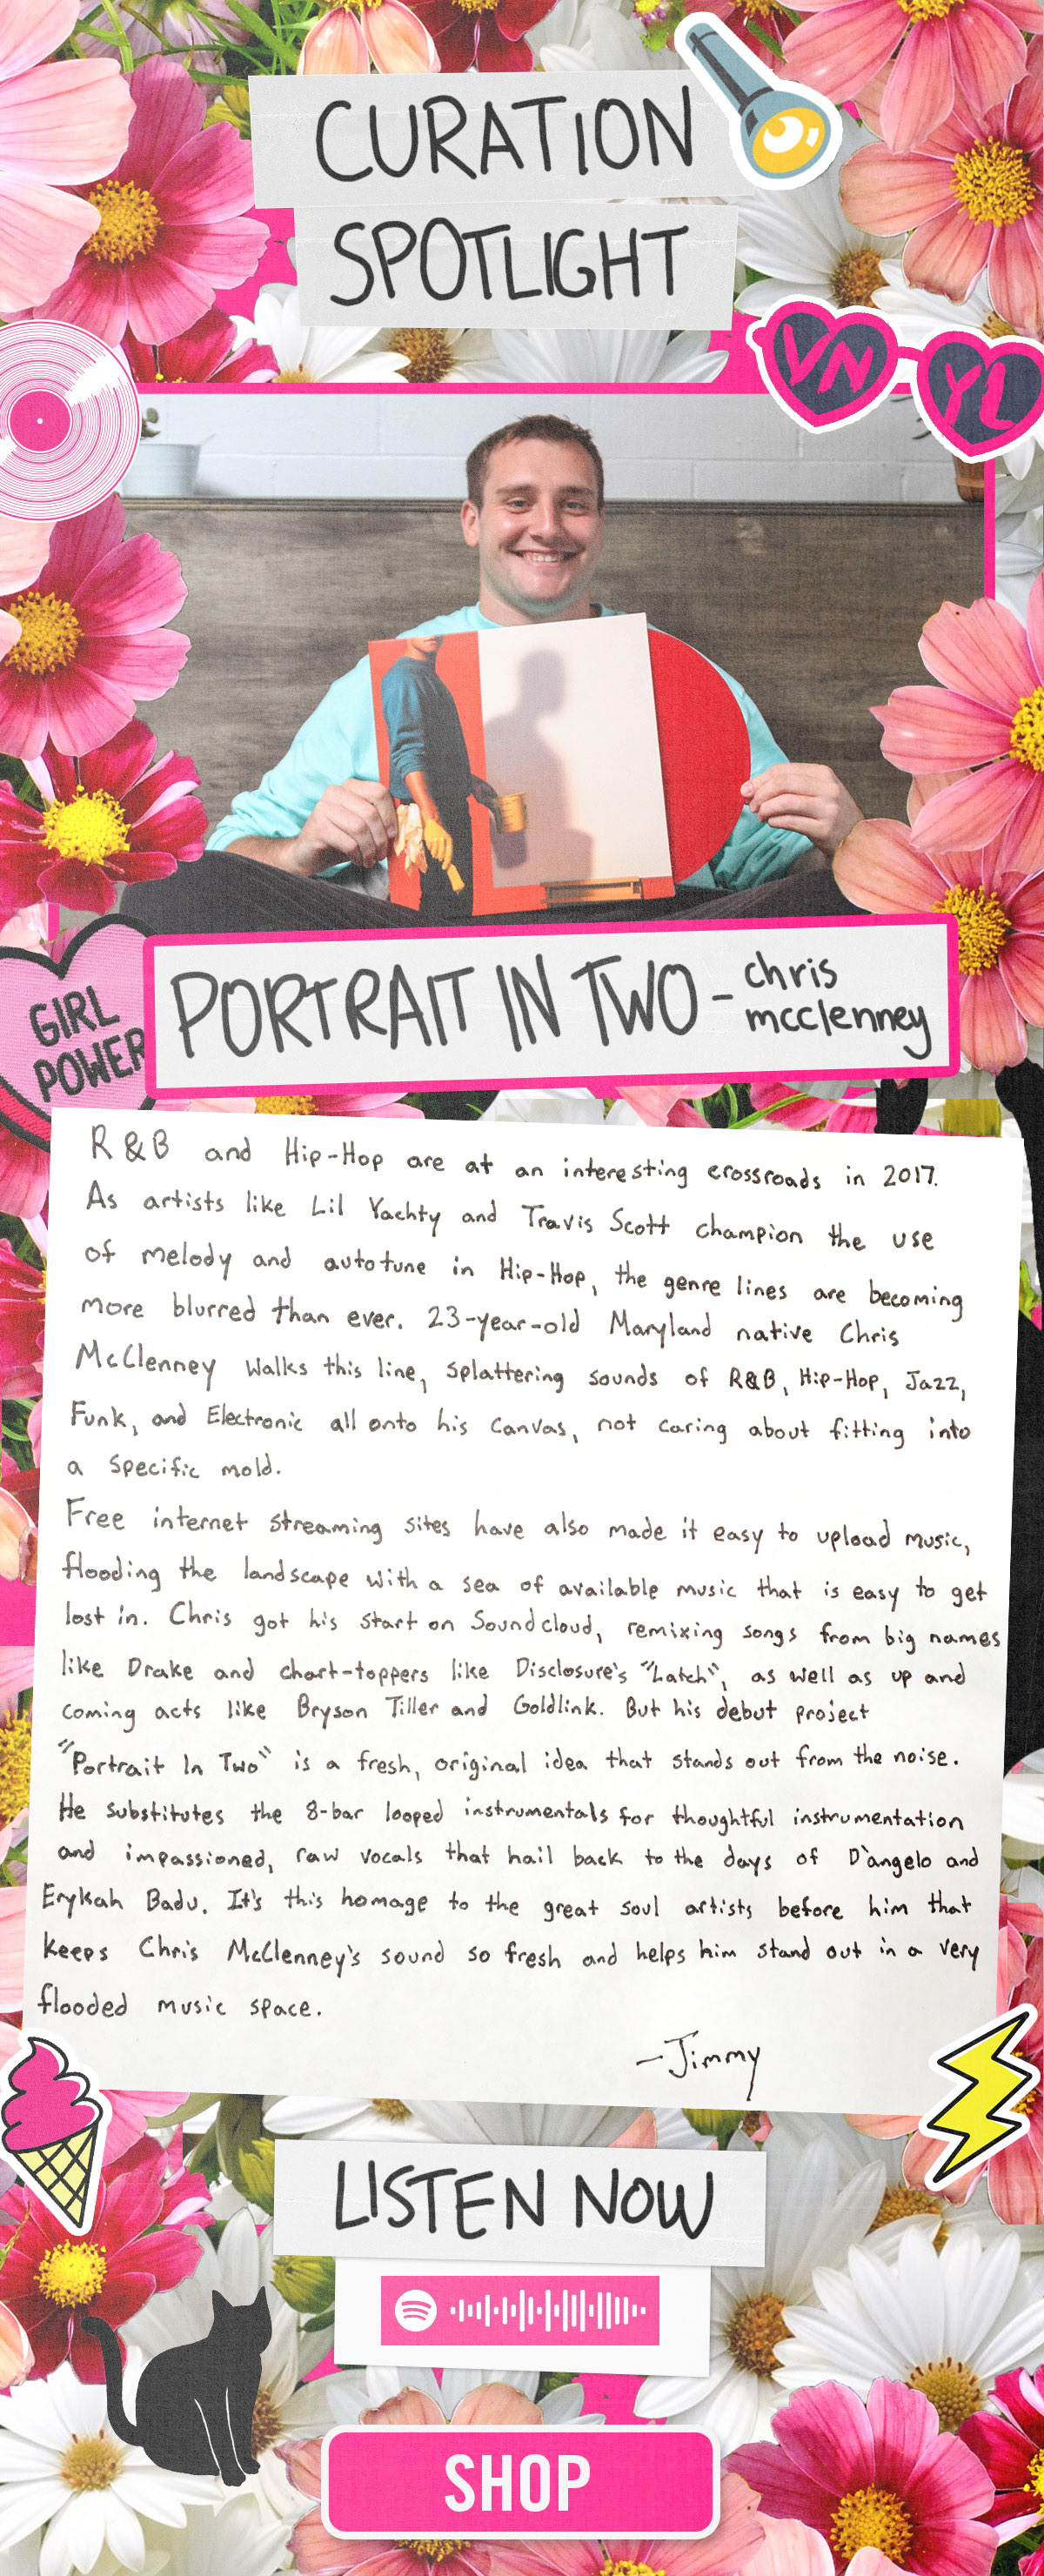 CURATION
SPOTLIGHT
VN YL
PORTRAIT IN TWO - chris
mcclenney
GIRL
POWER
R&B and Hip-Hop are at an interesting crossroads in 2017.
As artists like Lil Yachty and Travis Scott champion the use
of melody and autotune in Hip-Hop, the genre lines are becoming
more blurred than ever. 23-year-old Maryland native Chris
McClenney walks this line, splattering sounds of R&B, Hip-Hop, Jazz,
Funk, and Electronic all onto his canvas, not caring about fitting into
a specific mold.
Free internet streaming sites have also made it easy to upload music,
flooding the landscape with a sea of available music that is easy to get
lost in. Chris got his start on Soundcloud, remixing songs from big names
like Drake and chart-toppers like Disclosure's "Latch", as well as up and
coming acts like Bryson Tiller and Goldlink. But his debut project
"Portrait In Two" is a fresh, original idea that stands out from the noise.
He substitutes the 8-bar looped instrumentals for thoughtful instrumentation
and impassioned, raw vocals that hail back to the days of D'angelo and
Erykah Badu. It's this homage to the great soul artists before him that
keeps Chris McClenney's sound so fresh and helps him stand out in a very
flooded music space.
-Jimmy
LISTEN NOW
SHOP